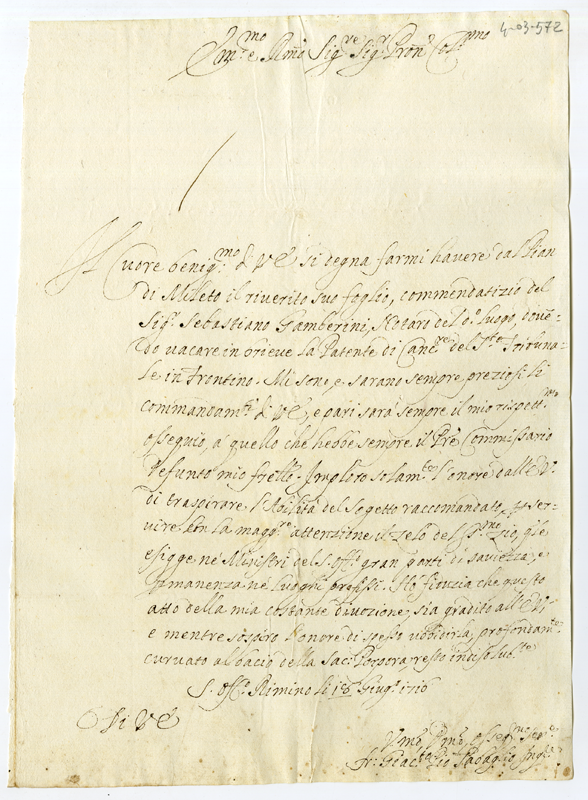 4-03-572
Em.mo e Rmo Sig.re Sig.r Pron. Col.mo
Il Cuore benig.mo di V E si degna farmi havere dal Pian
di Meleto il riverito suo foglio, commendatizio del
Sig.r Sebastiano Gamberini, Notaro del d.o luogo, doven-
do vacare in brieve la Patente di Canc.re del S.to Tribuna-
le in Frontino. Mi sono, e sarano sempre preziosi li
commandam.ti di V E, e pari sarà sempre il mio rispett.mo
ossequio, a quello che hebbe sempre il Pre Commissario
defunto mio frello. Imploro solam.te l'onore dall' E V.
di traspirare l'Abilità del Sogetto raccomandato, per ser-
vire con la magg.re attenzione il zelo del
esigge ne Ministri del S. Off.o gran doti di saviezza, e
permanenza ne luoghi prefissi. Ho fiduzia che questo
atto della mia costante divozione, sia gradito all' E V.
e mentre sospiro l'onore di spesso ubbidirla, profondam.te
curvato al bacio della Sac. Porpora, resto indisolub.te
S. Off.o Rimino li 18 Giug.o 1716
Di V E
Umo Dmo, e osseq.mo Ser.e
Fr. Giac.to Pio Inq.re